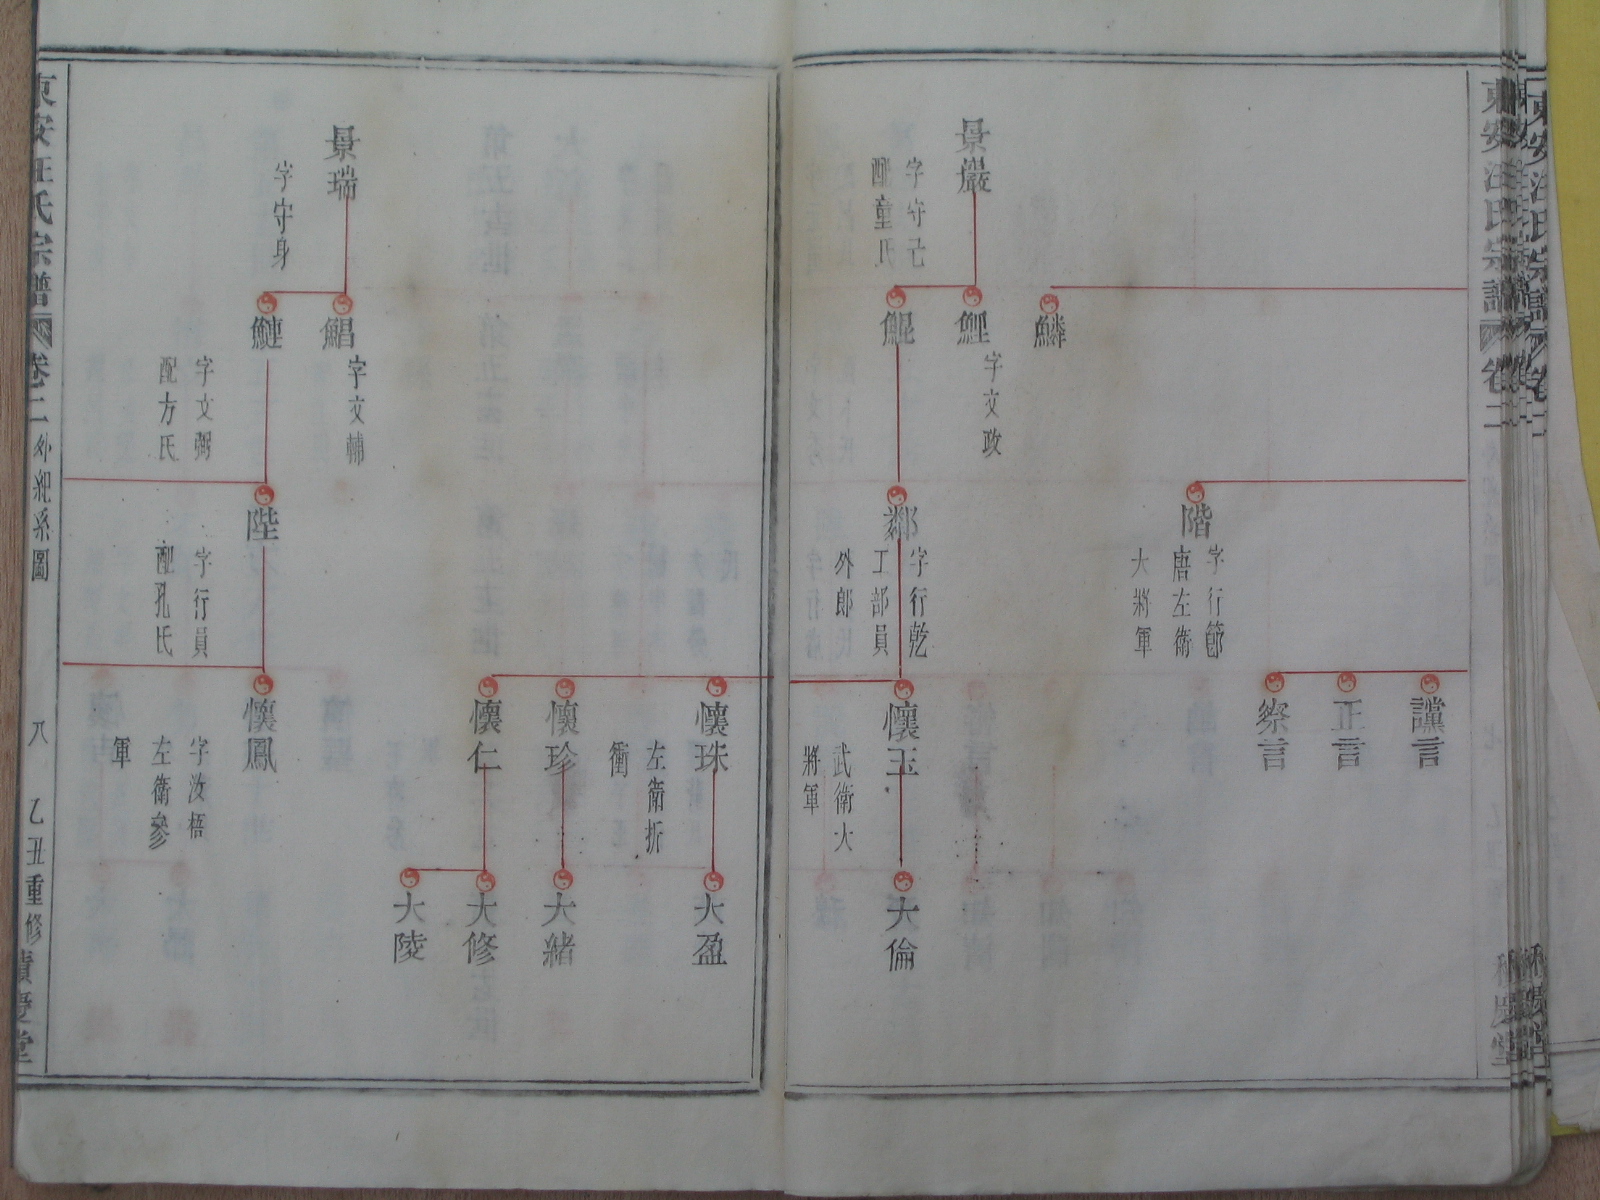 東安汪氏宗譜
卷二
景巖
字守忘
配童氏
鱗
鯉
字文政
鯤
階
字行節
唐左衛
大將軍
鄰
字行乾
工部員
外郎
讜言
正言
察言
懷玉
武衛大
將軍
大倫
懷珠
左衛折
衝
懷珍
懷仁
大盈
大緒
大修
大陵
景瑞
字守身
鯧
字文輔
鰱
字文弼
配方氏
陛
字行員
配孔氏
懷鳳
字汝梧
左衛參
軍
東安汪氏宗譜
卷二
外紀系圖
八
乙丑重修
積慶堂